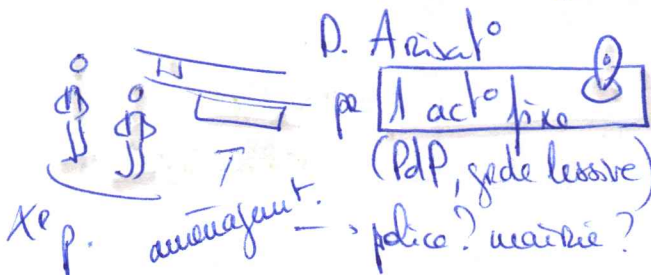 D.
pe 1 act° fixe
(PdP, gde lessive)
X° p. aménagent. → police? mairie?